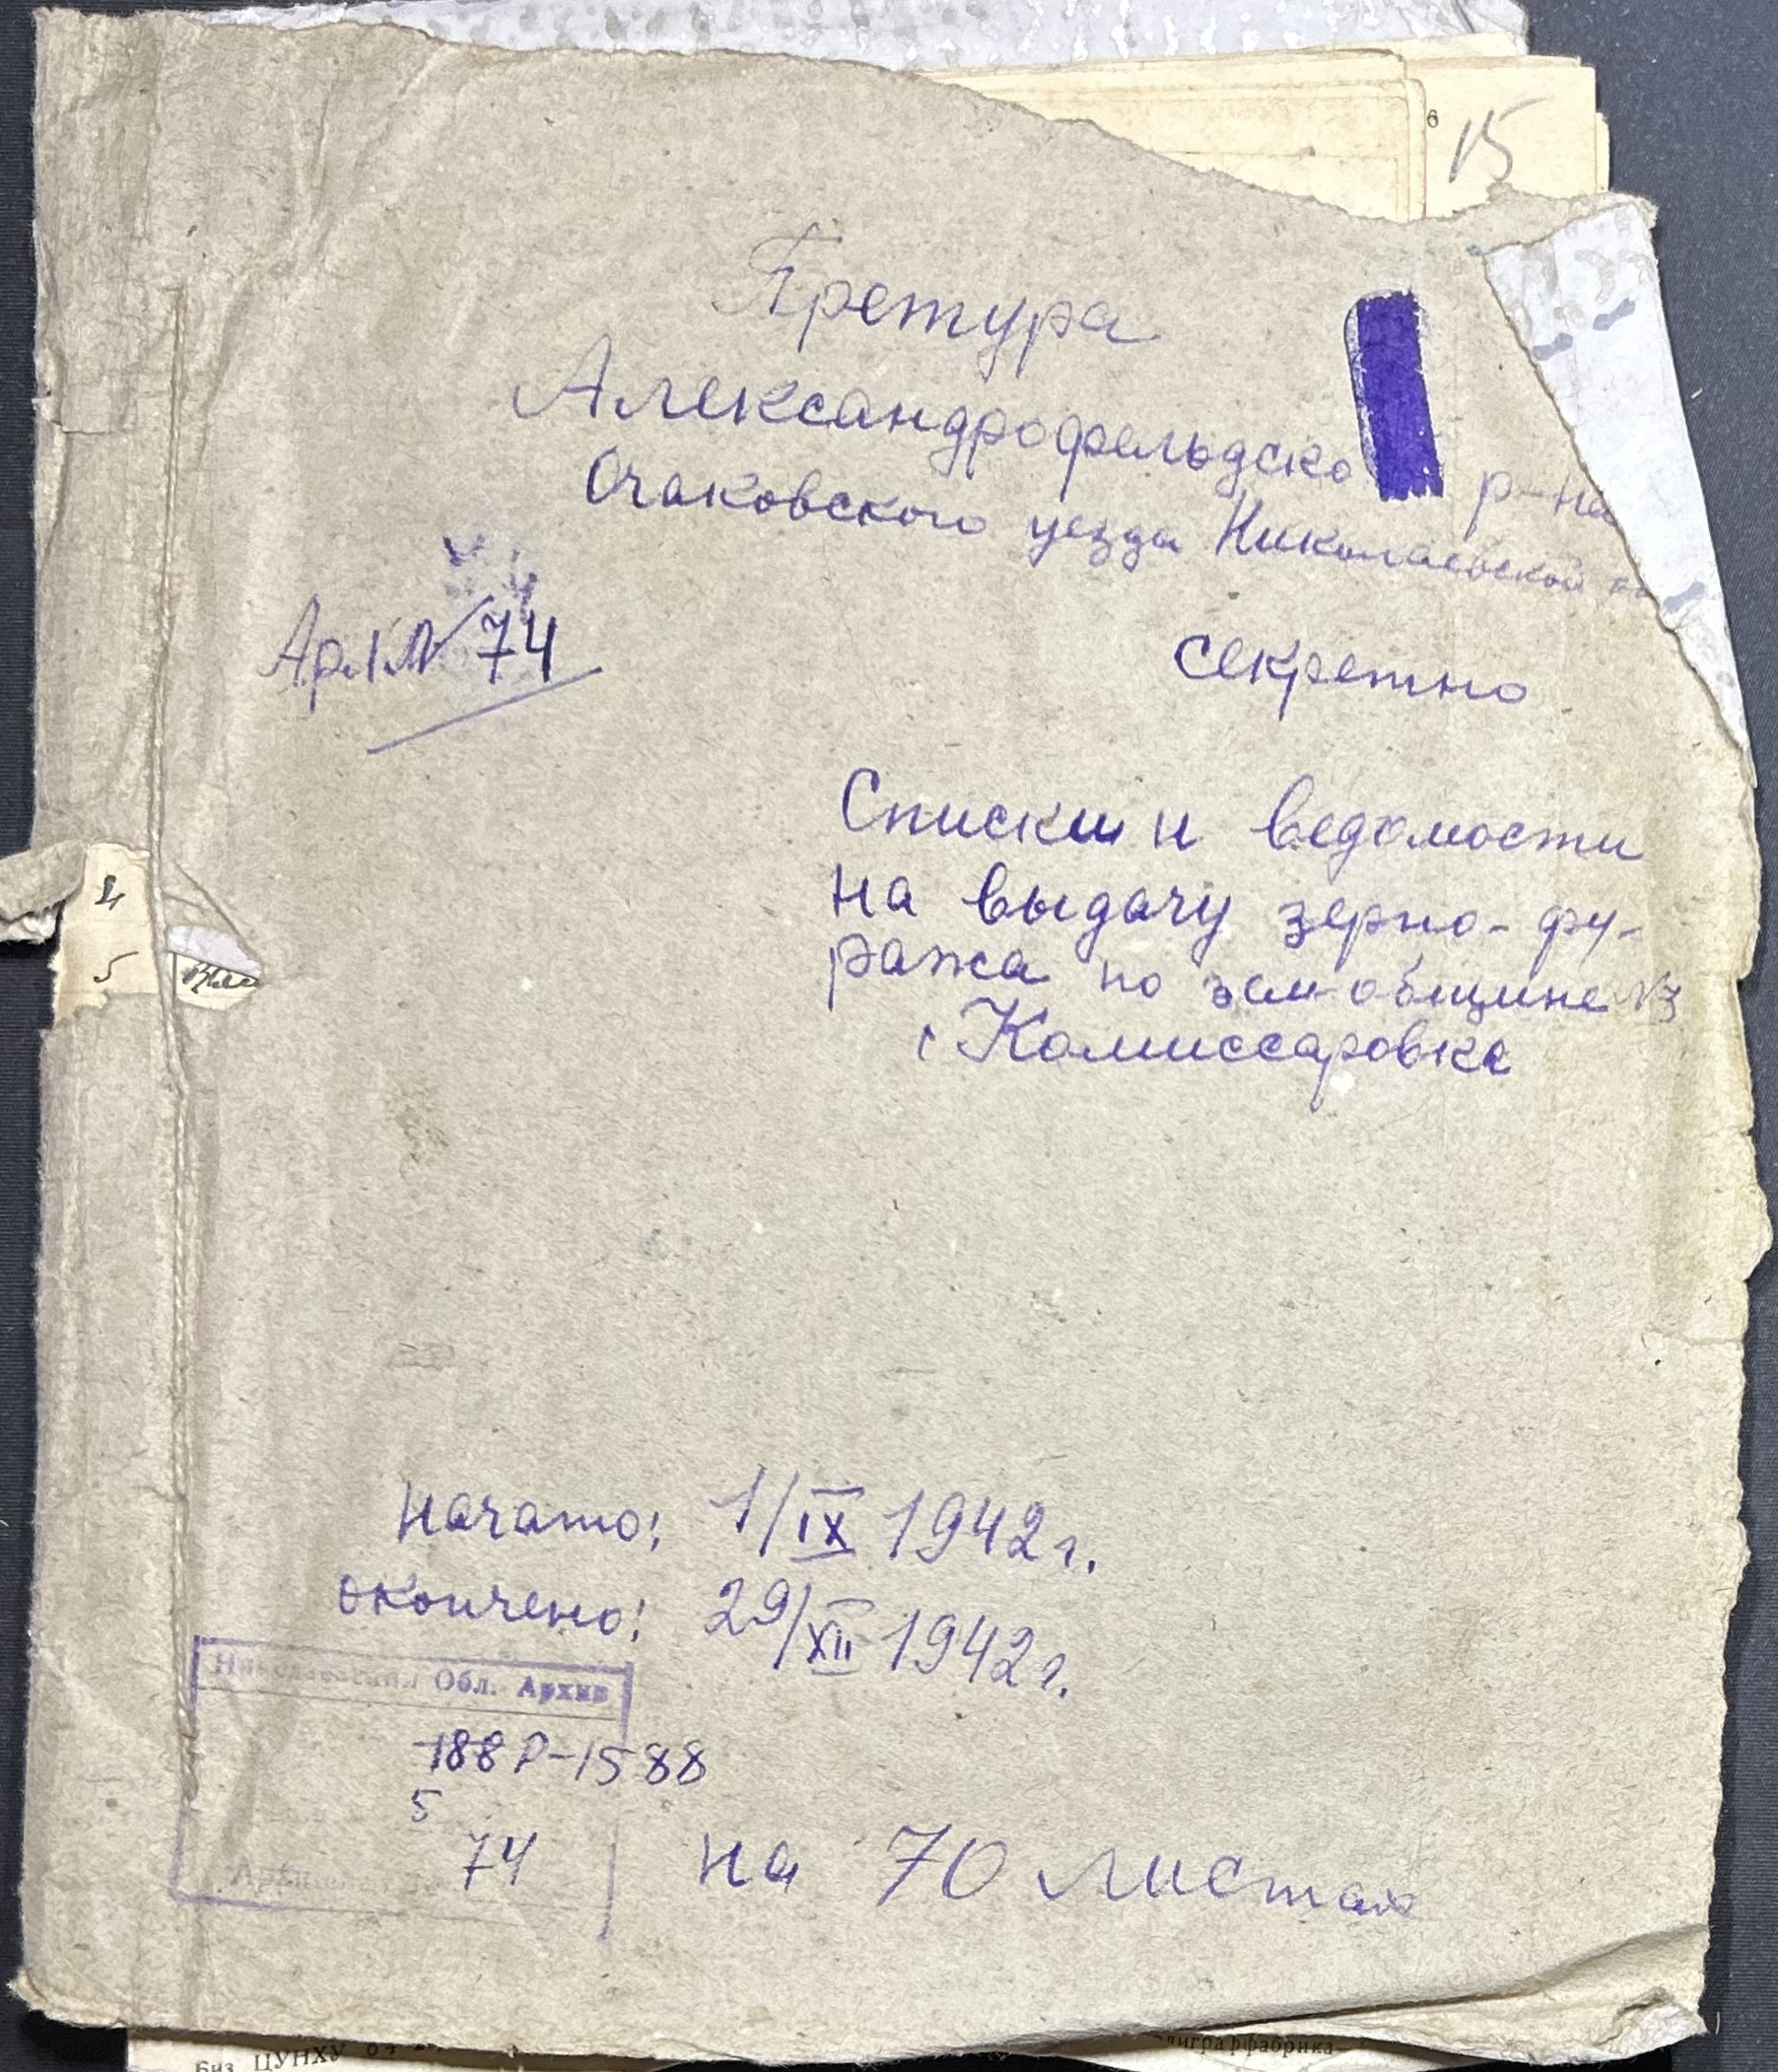 6 15
Претура
Александрофельдско р-на
Очаковского уезда Николаевской
Арх № 74
секретно
Списки и ведомости
на выдачу зерно-фу-
ража по зем-общине №3
с Комиссаровка
4
5
начато: 1/IX 1942 г.
окончено: 29/XII 1942 г.
Николаевский Обл. Архив
188 Р-1588
5
74
на 70 листах
ЦУНХУ
лиграффабрика